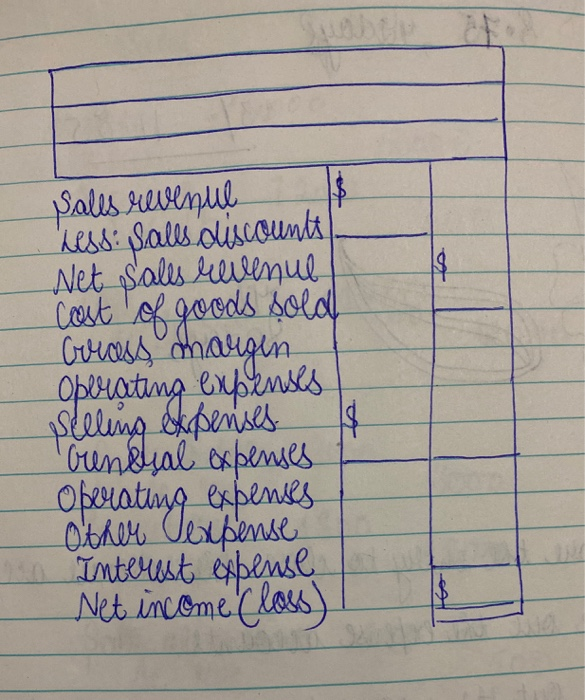 Sales revenue $
Less: Sales discounts
Net Sales revenue $
Cost of goods sold
Gross margin
Operating expenses
Selling expenses $
General expenses
Operating expenses
Other expense
Interest expense
Net income (loss) $